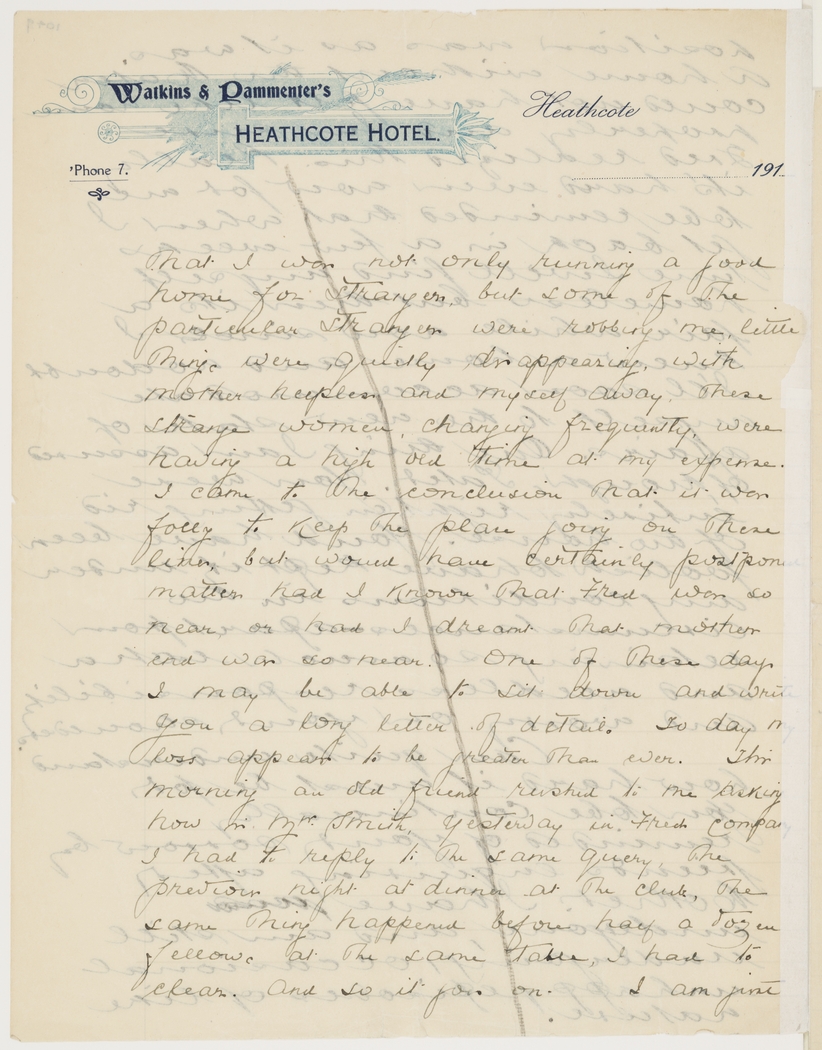 Watkins & Pammenter's
HEATHCOTE HOTEL.
'Phone 7.
Heathcote
191
that I was not only running a good
home for strangers, but some of the
particular strangers were robbing me, little
things were quietly disappearing, with
mother helpless and myself away. These
strange women, changing frequently, were
having a high old time at my expense.
I came to the conclusion that it was
folly to keep the place going on these
lines, but would have certainly postpon
matters had I known that Fred was so
near or had I dreamt that mothers
end was so near. One of these days
I may be able to sit down and writ
you a long letter of details. To day m
loss appears to be greater than ever. This
morning an old friend rushed to me asking
how is Mrs. Smith, yesterday in Freds compa
I had to reply to the same query, the
previous night at dinner at the club, the
same thing happened before half a dozen
fellows at the same table, I had to
clear. And so it goes on. I am just